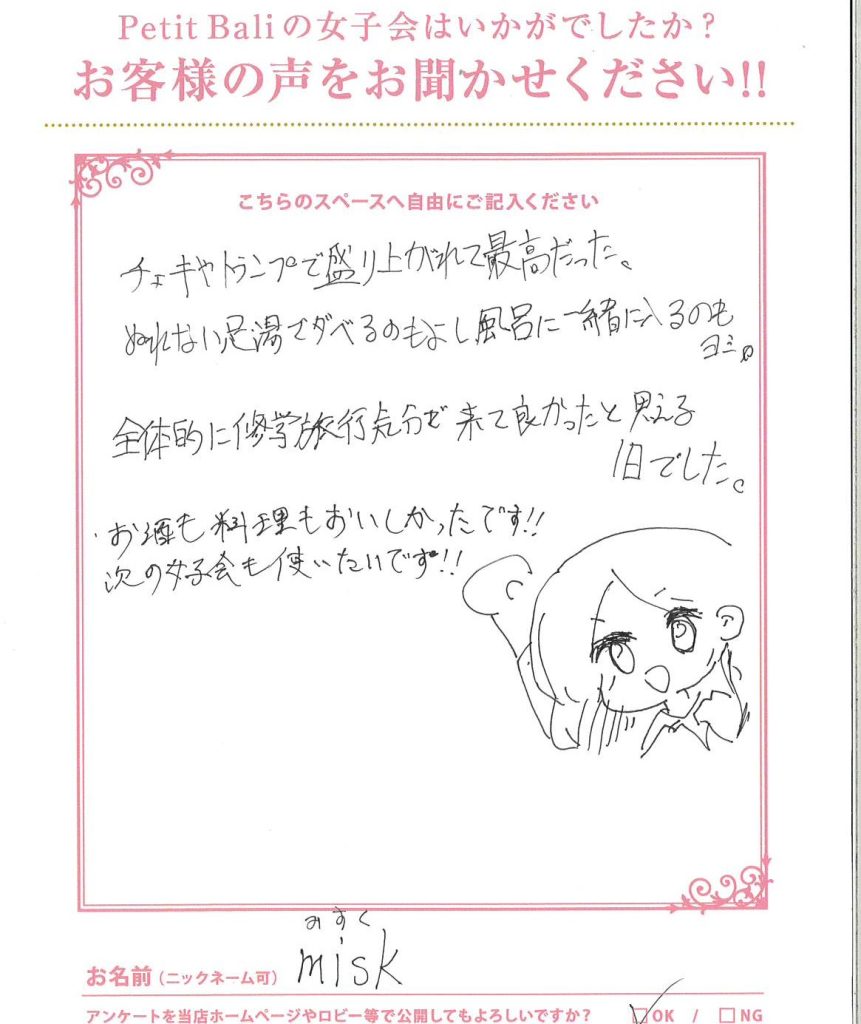 Petit Baliの女子会はいかがでしたか?
お客様の声をお聞かせください!!
こちらのスペースへ自由にご記入ください
チェキやトランプで盛り上がれて最高だった。
ぬれない足湯でダベるのもよし風呂に一緒に入るのも
ヨシ。
全体的に修学旅行気分で来て良かったと思える
1日でした。
お酒も料理もおいしかったです!!
次の女子会も使いたいです!!
みすく
お名前(ニックネーム可) misk
アンケートを当店ホームページやロビー等で公開してもよろしいですか? ☑OK / □NG